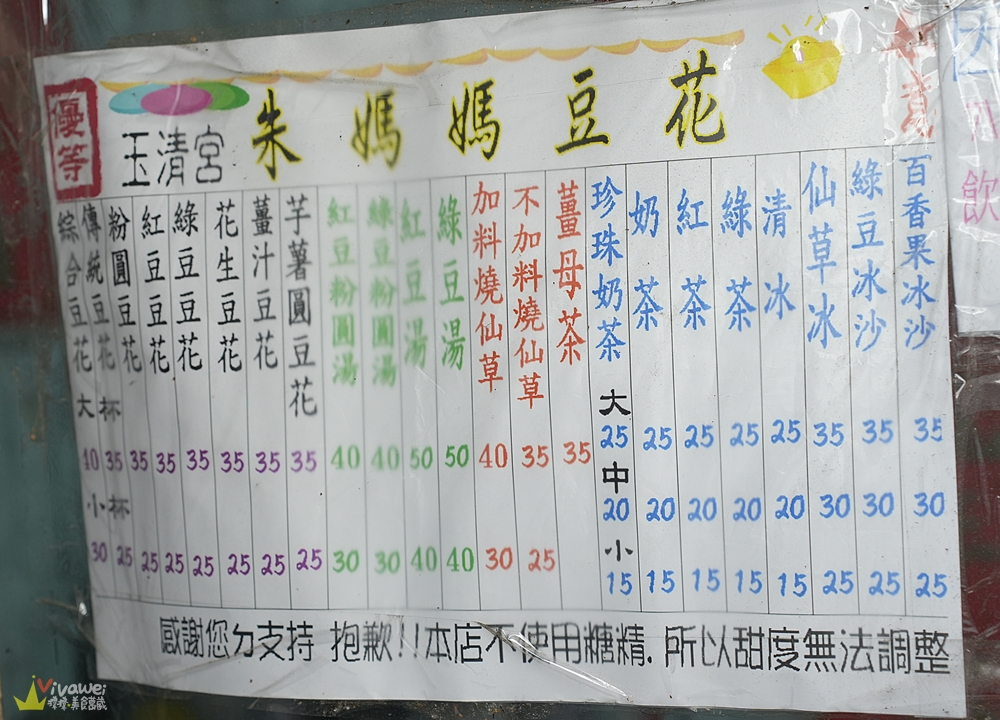 優等
玉清宮 朱媽媽豆花
綜合豆花 大杯 40 小杯 30
傳統豆花 35 25
粉圓豆花 35 25
紅豆豆花 35 25
綠豆豆花 35 25
花生豆花 35 25
薑汁豆花 35 25
芋薯圓豆花 35 25
紅豆粉圓湯 40 30
綠豆粉圓湯 40 30
紅豆湯 50 40
綠豆湯 50 40
加料燒仙草 40 30
不加料燒仙草 35 25
薑母茶 35
珍珠奶茶 大 25 中 20 小 15
奶茶 25 20 15
紅茶 25 20 15
綠茶 25 20 15
清冰 25 20 15
仙草冰 35 30 25
綠豆冰沙 35 30 25
百香果冰沙 35 30 25
感謝您ㄉ支持 抱歉!!本店不使用糖精.所以甜度無法調整
飲
Vivawei